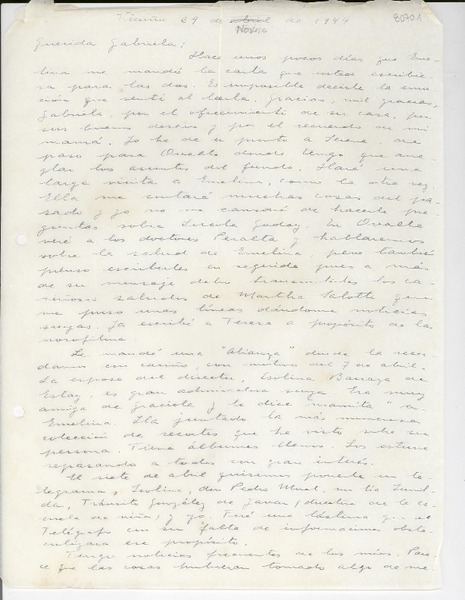 Vicuña 29 de abril de 1944
Novbre
80701
Querida Gabriela:
Hace unos pocos días que Eme-
lina me mandó la carta que usted escribie-
ra para las dos. Es imposible decirle la emo-
ción que sentí al leerla. Gracias, mil gracias,
Gabriela, por el ofrecimiento de su casa, por
sus buenos deseos y por el recuerdo de mi
mamá. Lo he de a punto a Serena. me
paso para Ovalle donde tengo que arre-
glar los asuntos del fundo. Haré una
larga visita a Emelina, como la otra vez.
Ella me contará muchas cosas del pa-
sado y yo no me cansaré de hacerle pre-
guntas sobre Lucila Godoy. En Ovalle
veré a los doctores Peralta y hablaremos
sobre la salud de Emelina, pero también
pienso escribirles en seguida pues a más
de su mensaje debo transmitirles los ca-
riñosos saludos de Martha Salotti que
me puso unas líneas dándome noticias
suyas. Ya escribí a Teresa a propósito de la
Le mandé una "Alianza" donde la recor-
damos con cariño, con motivo del 7 de abril.
La esposa del director, Isolina Barraza de
Estay, es gran admiradora suya. Era muy
amiga de Graciela y le dice "mamita" a
Emelina. Ha juntado la más numerosa
colección de recortes que he visto sobre su
persona. Tiene álbumes llenos. Los estuve
repasando a todos con gran interés.
El siete de abril quisimos ponerle un te-
legrama, Isolina, don Pedro Moral, su tía
Tránsito González de Gavar, directora de la es-
cuela de niñas y yo. Fué una lástima que el
Telégrafo con su falta de informaciones obsta-
culizara ese propósito.
Tengo noticias frecuentes de los míos. Pare
ce que las cosas hubieran tomado algo de me-